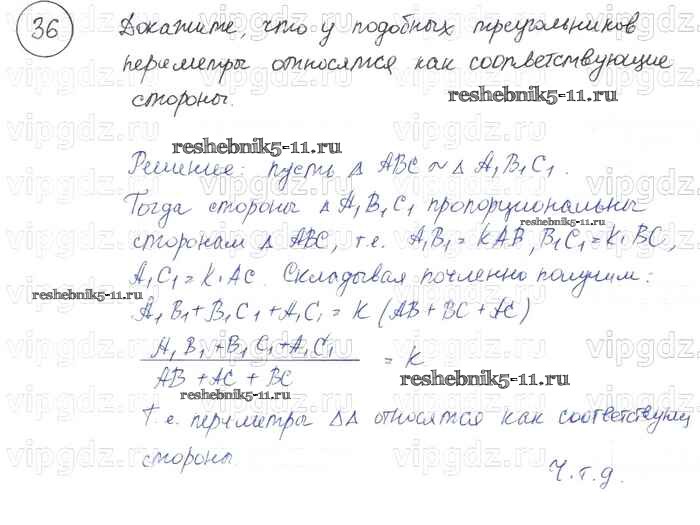 36 Докажите, что у подобных треугольников
периметры относятся как соответствующие
стороны.
reshebnik5-11.ru
reshebnik5-11.ru
Решение: пусть △ ABC ~ △ A₁B₁C₁.
Тогда стороны △ A₁B₁C₁ пропорциональны
reshebnik5-11.ru
сторонам △ ABC, т.е. A₁B₁ = KAB, B₁C₁ = K·BC,
A₁C₁ = K·AC. Складывая почленно получим:
reshebnik5-11.ru
A₁B₁ + B₁C₁ + A₁C₁ = K (AB + BC + AC)
A₁B₁ + B₁C₁ + A₁C₁
AB + AC + BC
= K
reshebnik5-11.ru
reshebnik5-11.ru
Т.е. периметры △△ относятся как соответствующ
стороны.
Ч.т.д.